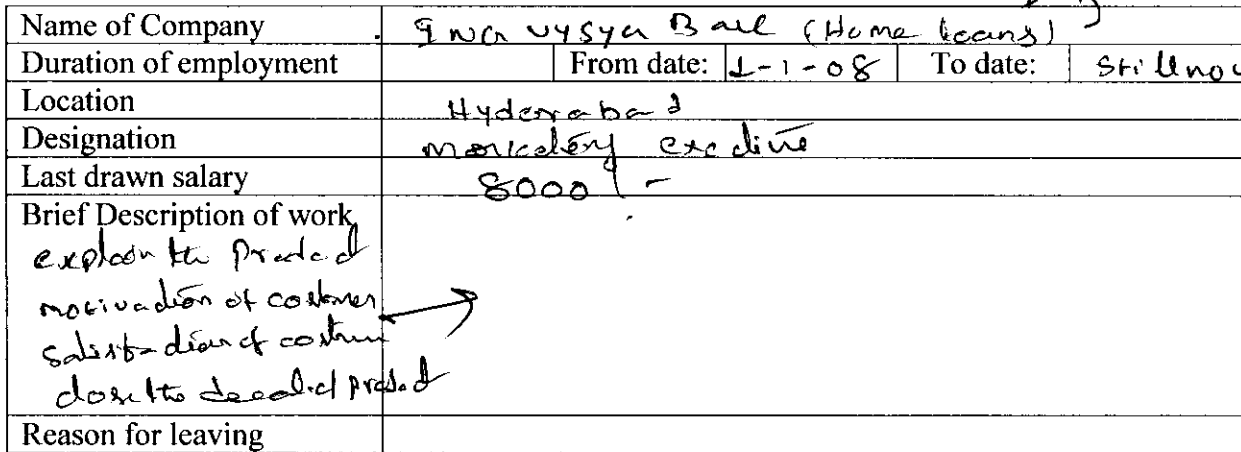 Name of Company . Ing vysya Bank (Home loans)
Duration of employment From date: 1-1-08 To date: Still now
Location Hyderabad
Designation marketing excutive
Last drawn salary 8000/-
Brief Description of work
explain the Product
motivation of costomer
satisfaction of costomer
close the deal of product
Reason for leaving